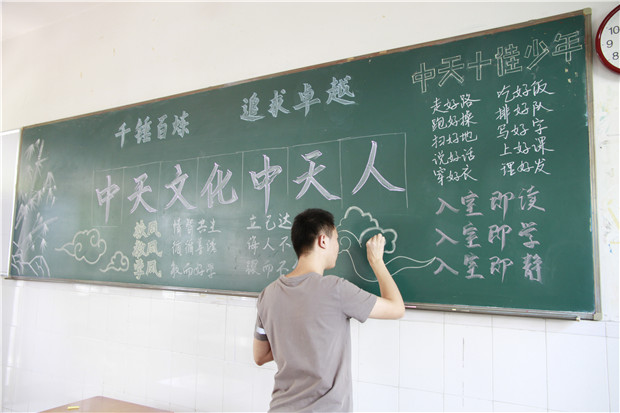 千锤百炼 追求卓越
中天文化中天人
校风
教风
学风
立己达
诲人不
中天十佳少年
走好路
跑好操
扫好地
说好话
穿好衣
吃好饭
排好队
写好字
上好课
理好发
入室即读
入室即学
入室即静
10
9
8